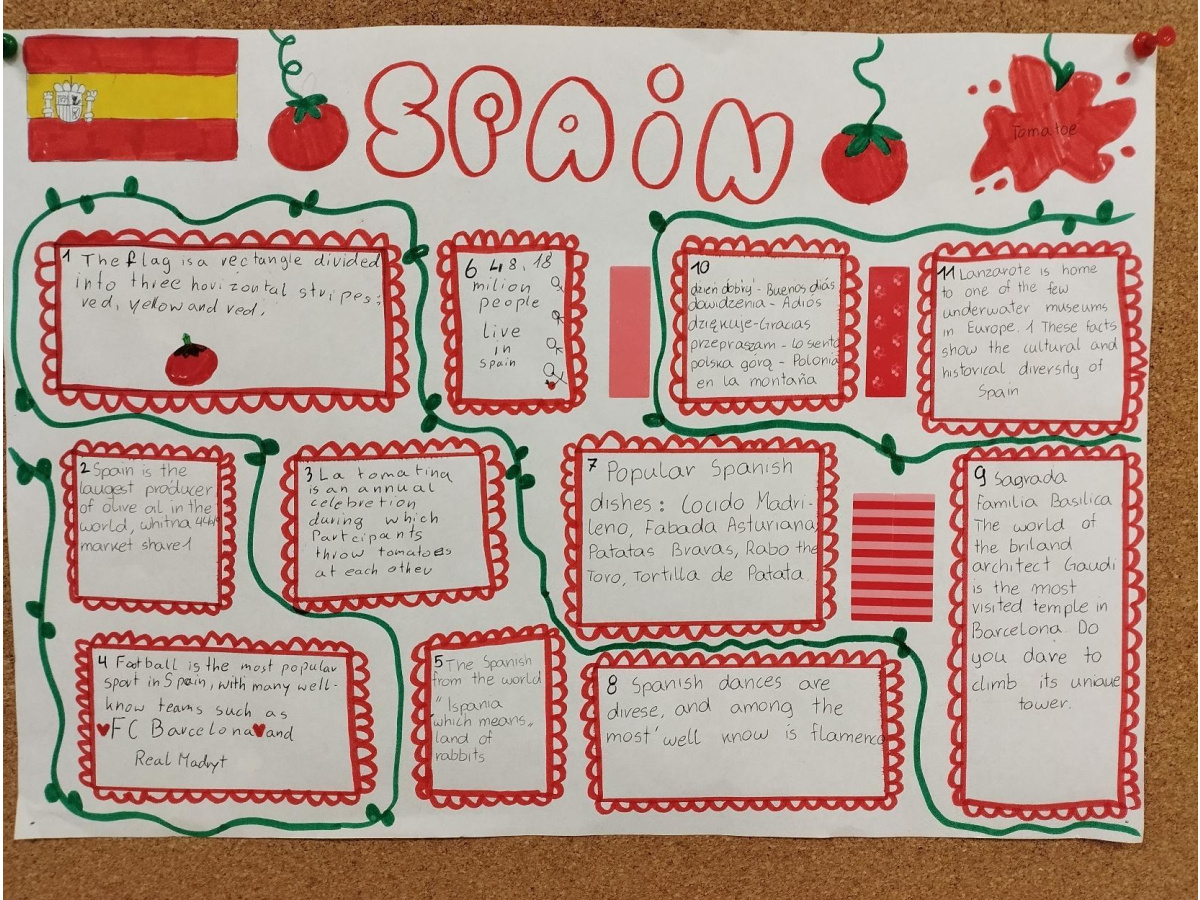 SPAiN
Tomatoe
1 The flag is a rectangle divided
into three horizontal stripes:
red, yellow and red.
2 Spain is the
laugest producer
of olive oil in the
world, whitna 44%
market share1
3 La tomatina
is an annual
celebretion
during which
Partcipants
throw tomatoes
at each other
4 Football is the most popular
sport in Spain, with many well-
know teams such as
FC Barcelona and
Real Madryt
5 The Spanish
from the world
"Ispania
which means„
land of
rabbits
6 48,18
milion
people
live
in
spain
7 Popular Spanish
dishes: Cocido Madri-
leno, Fabada Asturiana,
Patatas Bravas, Rabo the
Toro, Tortilla de Patata.
8 Spanish dances are
divese, and among the
most well know is flamenco
9 Sagrada
Familia Basilica
The world of
the briland
architect Gaudi
is the most
visited temple in
Barcelona. Do
you dare to
climb its unique
tower.
10
dzień dobry - Buenos diás
dowidzenia - Adiós
dziękuje - Gracias
przepraszam - Lo siento
polska górą - Polonia
en la montaña
11 Lanzarote is home
to one of the few
underwater museums
in Europe. 1 These facts
show the cultural and
historical diversity of
Spain